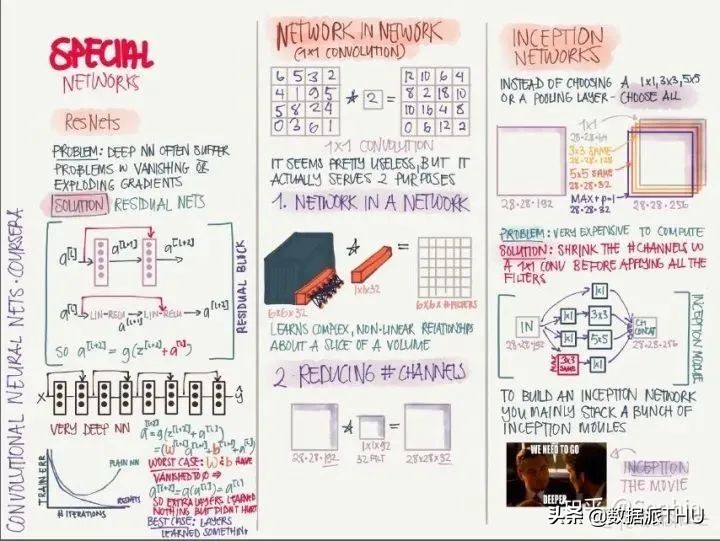 CONVOLUTIONAL NEURAL NETS · COURSERA
SPECIAL
NETWORKS
ResNets
PROBLEM: DEEP NN OFTEN SUFFER
PROBLEMS W VANISHING OR
EXPLODING GRADIENTS
SOLUTION RESIDUAL NETS
a[l] a[l+1] a[l+2]
a[l] LIN-RELU LIN-RELU a[l+2]
a[l+1]
SO a[l+2] = g(z[l+2] + a[l])
RESIDUAL BLOCK
X ŷ
VERY DEEP NN
a[l+2] = g(z[l+2] + a[l])
= (w[l+2] a[l+1] + b[l+2] + a[l])
WORST CASE: W & b HAVE
VANISHED TO 0 ⇒
a[l+2] = g(a[l]) = a[l]
SO EXTRA LAYERS LEARNED
NOTHING BUT DIDN'T HURT
BEST CASE: LAYERS
LEARNED SOMETHING
TRAIN ERR
PLAIN NN
RESNETS
# ITERATIONS
NETWORK IN NETWORK
(1x1 CONVOLUTION)
6 5 3 2
4 1 9 5
5 8 2 4
0 3 6 1
* 2 =
12 10 6 4
8 2 18 10
10 16 4 8
0 6 12 2
1x1 CONVOLUTION
IT SEEMS PRETTY USELESS, BUT IT
ACTUALLY SERVES 2 PURPOSES
1. NETWORK IN A NETWORK
* =
6x6x32
1x1x32
6x6x#FILTERS
LEARNS COMPLEX, NON-LINEAR RELATIONSHIPS
ABOUT A SLICE OF A VOLUME
2. REDUCING # CHANNELS
* =
28·28·192
1x1x192
32 FILT
28x28x32
INCEPTION
NETWORKS
INSTEAD OF CHOOSING A 1x1, 3x3, 5x5
OR A POOLING LAYER - CHOOSE ALL
1x1
28·28·64
3x3 SAME
28·28·128
5x5 SAME
28·28·32
MAX + p=1
28·28·32
28·28·192
28·28·256
PROBLEM: VERY EXPENSIVE TO COMPUTE
SOLUTION: SHRINK THE #CHANNELS W
A 1x1 CONV BEFORE APPLYING ALL THE
FILTERS
IN
28·28·192
1x1
1x1 3x3
1x1 5x5
3x3 SAME 1x1
CH CONCAT
28·28·256
INCEPTION MODULE
TO BUILD AN INCEPTION NETWORK
YOU MAINLY STACK A BUNCH OF
INCEPTION MOULES
WE NEED TO GO
DEEPER
INCEPTION
THE MOVIE
头条 @数据派THU